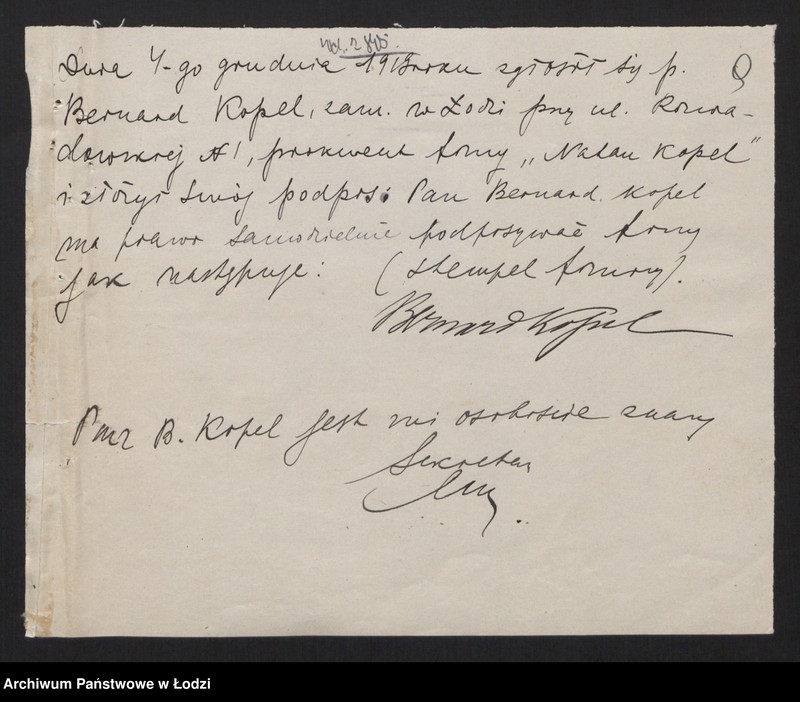 Dnia 4-go grudnia 191 roku zgłosił się p.
Bernard Kopel, zam. w Łodzi przy ul. Rozwa-
dowskiej № 1, prokurent firmy „Natan Kopel”
i złożył swój podpis: Pan Bernard Kopel
ma prawo samodzielnie podpisywać firmy
jak następuje: (stempel firmowy).
Bernard Kopel
Pan B. Kopel jest mi osobiście znany
Sekretarz
Archiwum Państwowe w Łodzi